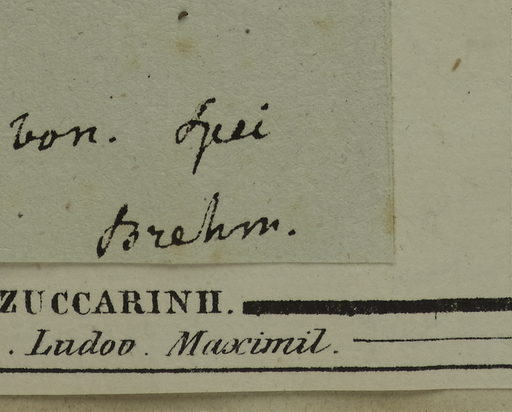 von. Spei
Brehm.
ZUCCARINII.
. Ludov. Maximil.